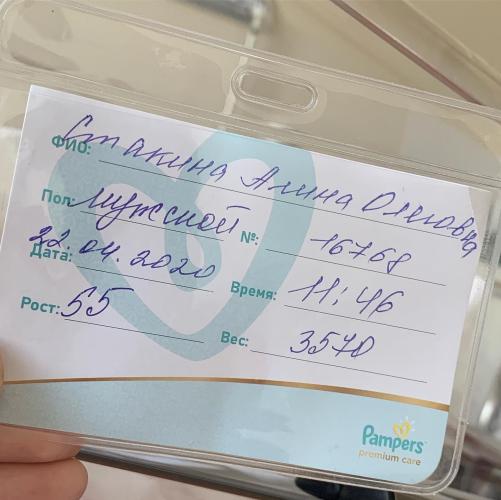 ФИО: Стакина Алина Олеговна
Пол: мужской №: 16768
Дата: 22.04.2020 Время: 11:46
Рост: 55 Вес: 3570
Pampers
premium care